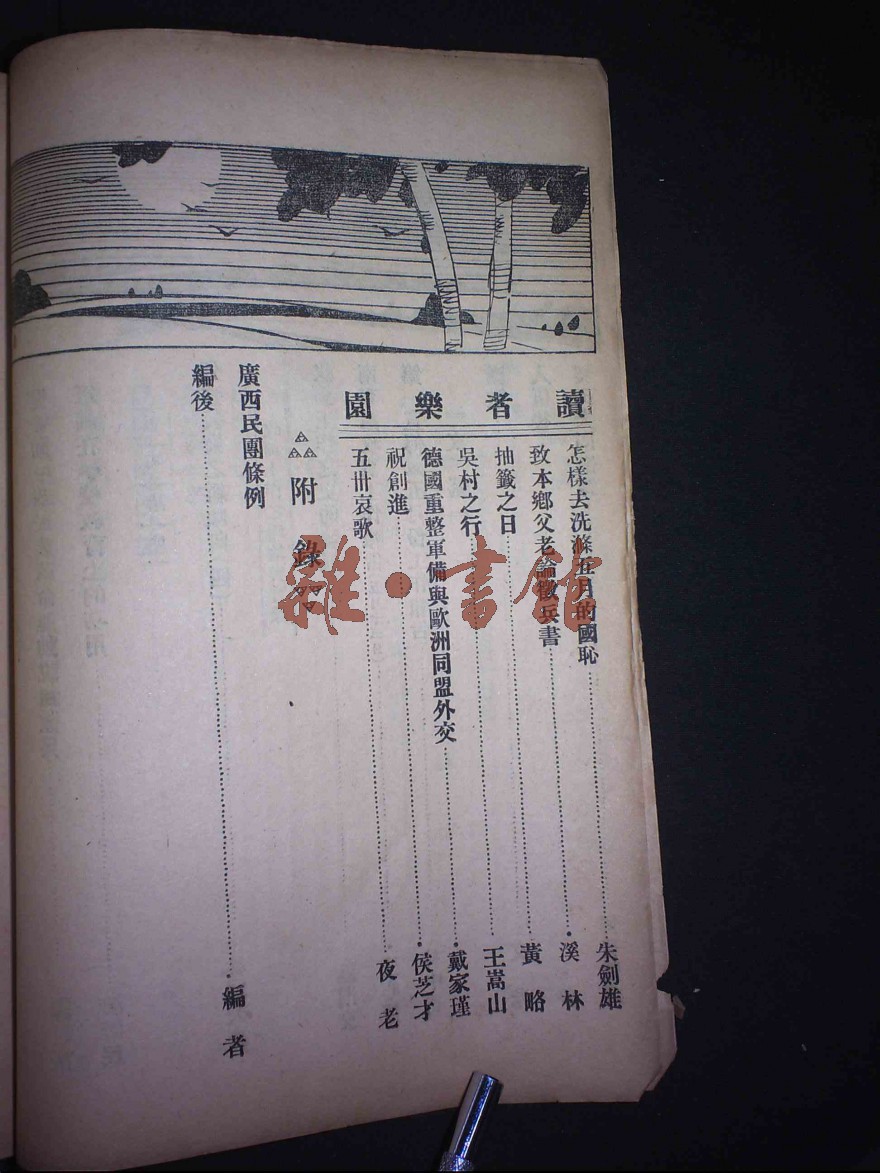 讀者樂園
怎樣去洗滌五月的國恥 朱劍雄
致本鄉父老論徵兵書 溪林
抽籤之日 黃略
吳村之行 王嵩山
德國重整軍備與歐洲同盟外交 戴家瑾
祝創進 侯芝才
五卅哀歌 夜老
附錄
廣西民團條例
編後 編者
雜·書館